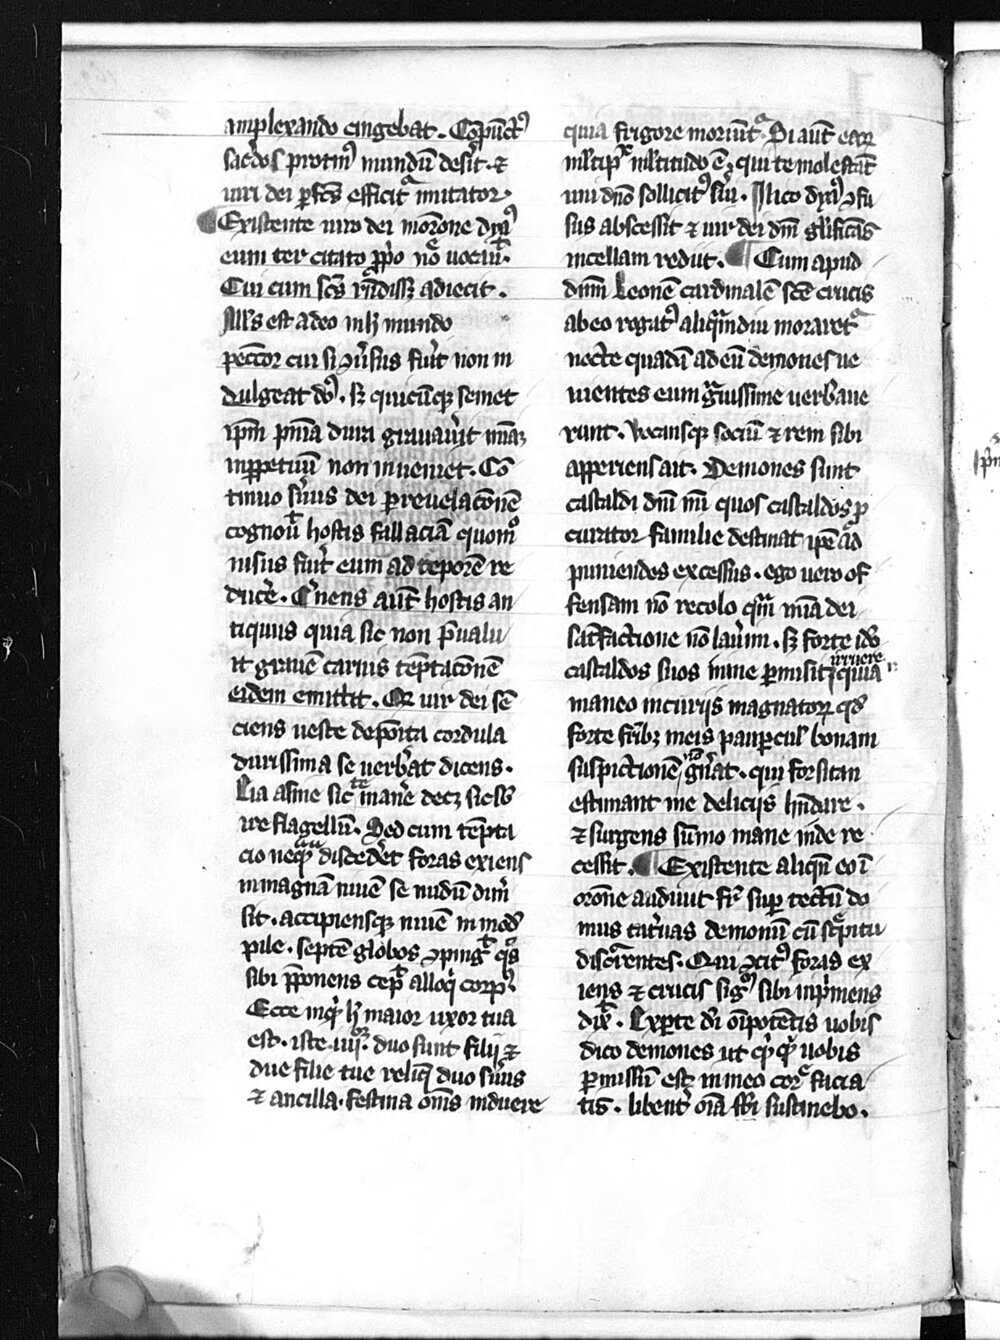 amplexando cingebat. Cōpūctꝰ
sacͥdos protinꝰ mundū desit. ⁊
uiri dei ꝑfcūs efficit᷑ imitator.
Existente uiro dei in orōne dyaꝰ
eum ter citato ꝓprio noīe uocauit.
Cui cum scūs rn̄disset adiecit.
Nullꝰ est adeo in hͦ mundo
peccͨor cui si ↄuersus fuͥit non in
dulgeat dꝰ. sꝫ quicūqꝫ semet
ipm̄ pnīa dura grauauͥit mīaꝫ
inꝑpetuū non inueniet. Cō
tinuo seruus dei ꝑ reuelacōnē
cognouit hostis fallaciā quomͦ
nisus fuͥit eum ad teporē re
ducere. Cernens aūt hostis an
tiquus quia sic non p̄ualu
it grauē carnis tēptacōnē
eidem emittit. Qꝫ uir dei sē
ciens ueste deposita cordula
durissima se uerberat dicens.
Eia asine sic te manere decet sic sb̄
ire flagellū. Sed cum tēpta
cio nequaquā discederet foras exiens
in magnā niuē se nudū dimͥ
sit. accipiensqꝫ niuē in modū
pile. septē globos ↄpingit q̄s
sibi ꝓponens cepit alloqi corpꝰ.
Ecce inq̇t hͨ maior uxor tua
est. iste .iiijoꝛ. duo sunt filij ⁊
due filie tue reliq̇ duo seruus
⁊ ancilla. festina oīns induere
quia frigore moriunt᷑. Si aūt eaꝝ
mͣltiplex mͣltitudo ē, qui te molestāt
uni dn̄o sollicitꝰ sͥui. Illico dyaꝰ ↄfu
sus abscessit ⁊ uir dei dm̄ glͥificās
in cellam rediit. Cum apud
dnm̄ Leonē cardinalē scē crucis
ab eo rogatꝰ aliquādiu moraret᷑
nocte quadā ad eū demones ue
nientes eum grauissime uerbaue
runt. Vocansqꝫ sociū ⁊ rem sibi
apperiens ait. Demones sunt
castaldi dn̄i nr̄i quos castaldos ꝓ
curator familie destinat ipē ad
puniendos excessus. ego uero of
fensam nō recolo quā mīa dei
satͥsfactione nō lauͥim. sꝫ forte ido
castaldos suos in me ꝑmisit irruere quia
maneo in curijs magnatoꝝ qd̄
forte fr̄ibꝫ meis pauꝑculͥ bonam
suspictionē nō gn̄at. qui forsitan
estimant me delicijs hn̄dare.
⁊ surgens sūmo mane inde re
cessit. Existente aliqn̄ eo ī
orōne audiuit fr̄ suꝑ tectū do
mus cateruas demonū cū strepitu
discurrentes. Qui ↄcitꝰ foras ex
iens ⁊ crucis signū sibi inp̄mens
dixit. Ex ꝑte di oīpotētis uobis
dico demones ut q̇cq̇d uobis
ꝑmissū est in meo corꝑe facia
tis. libentͥ oīa fr̄i sustinebo.